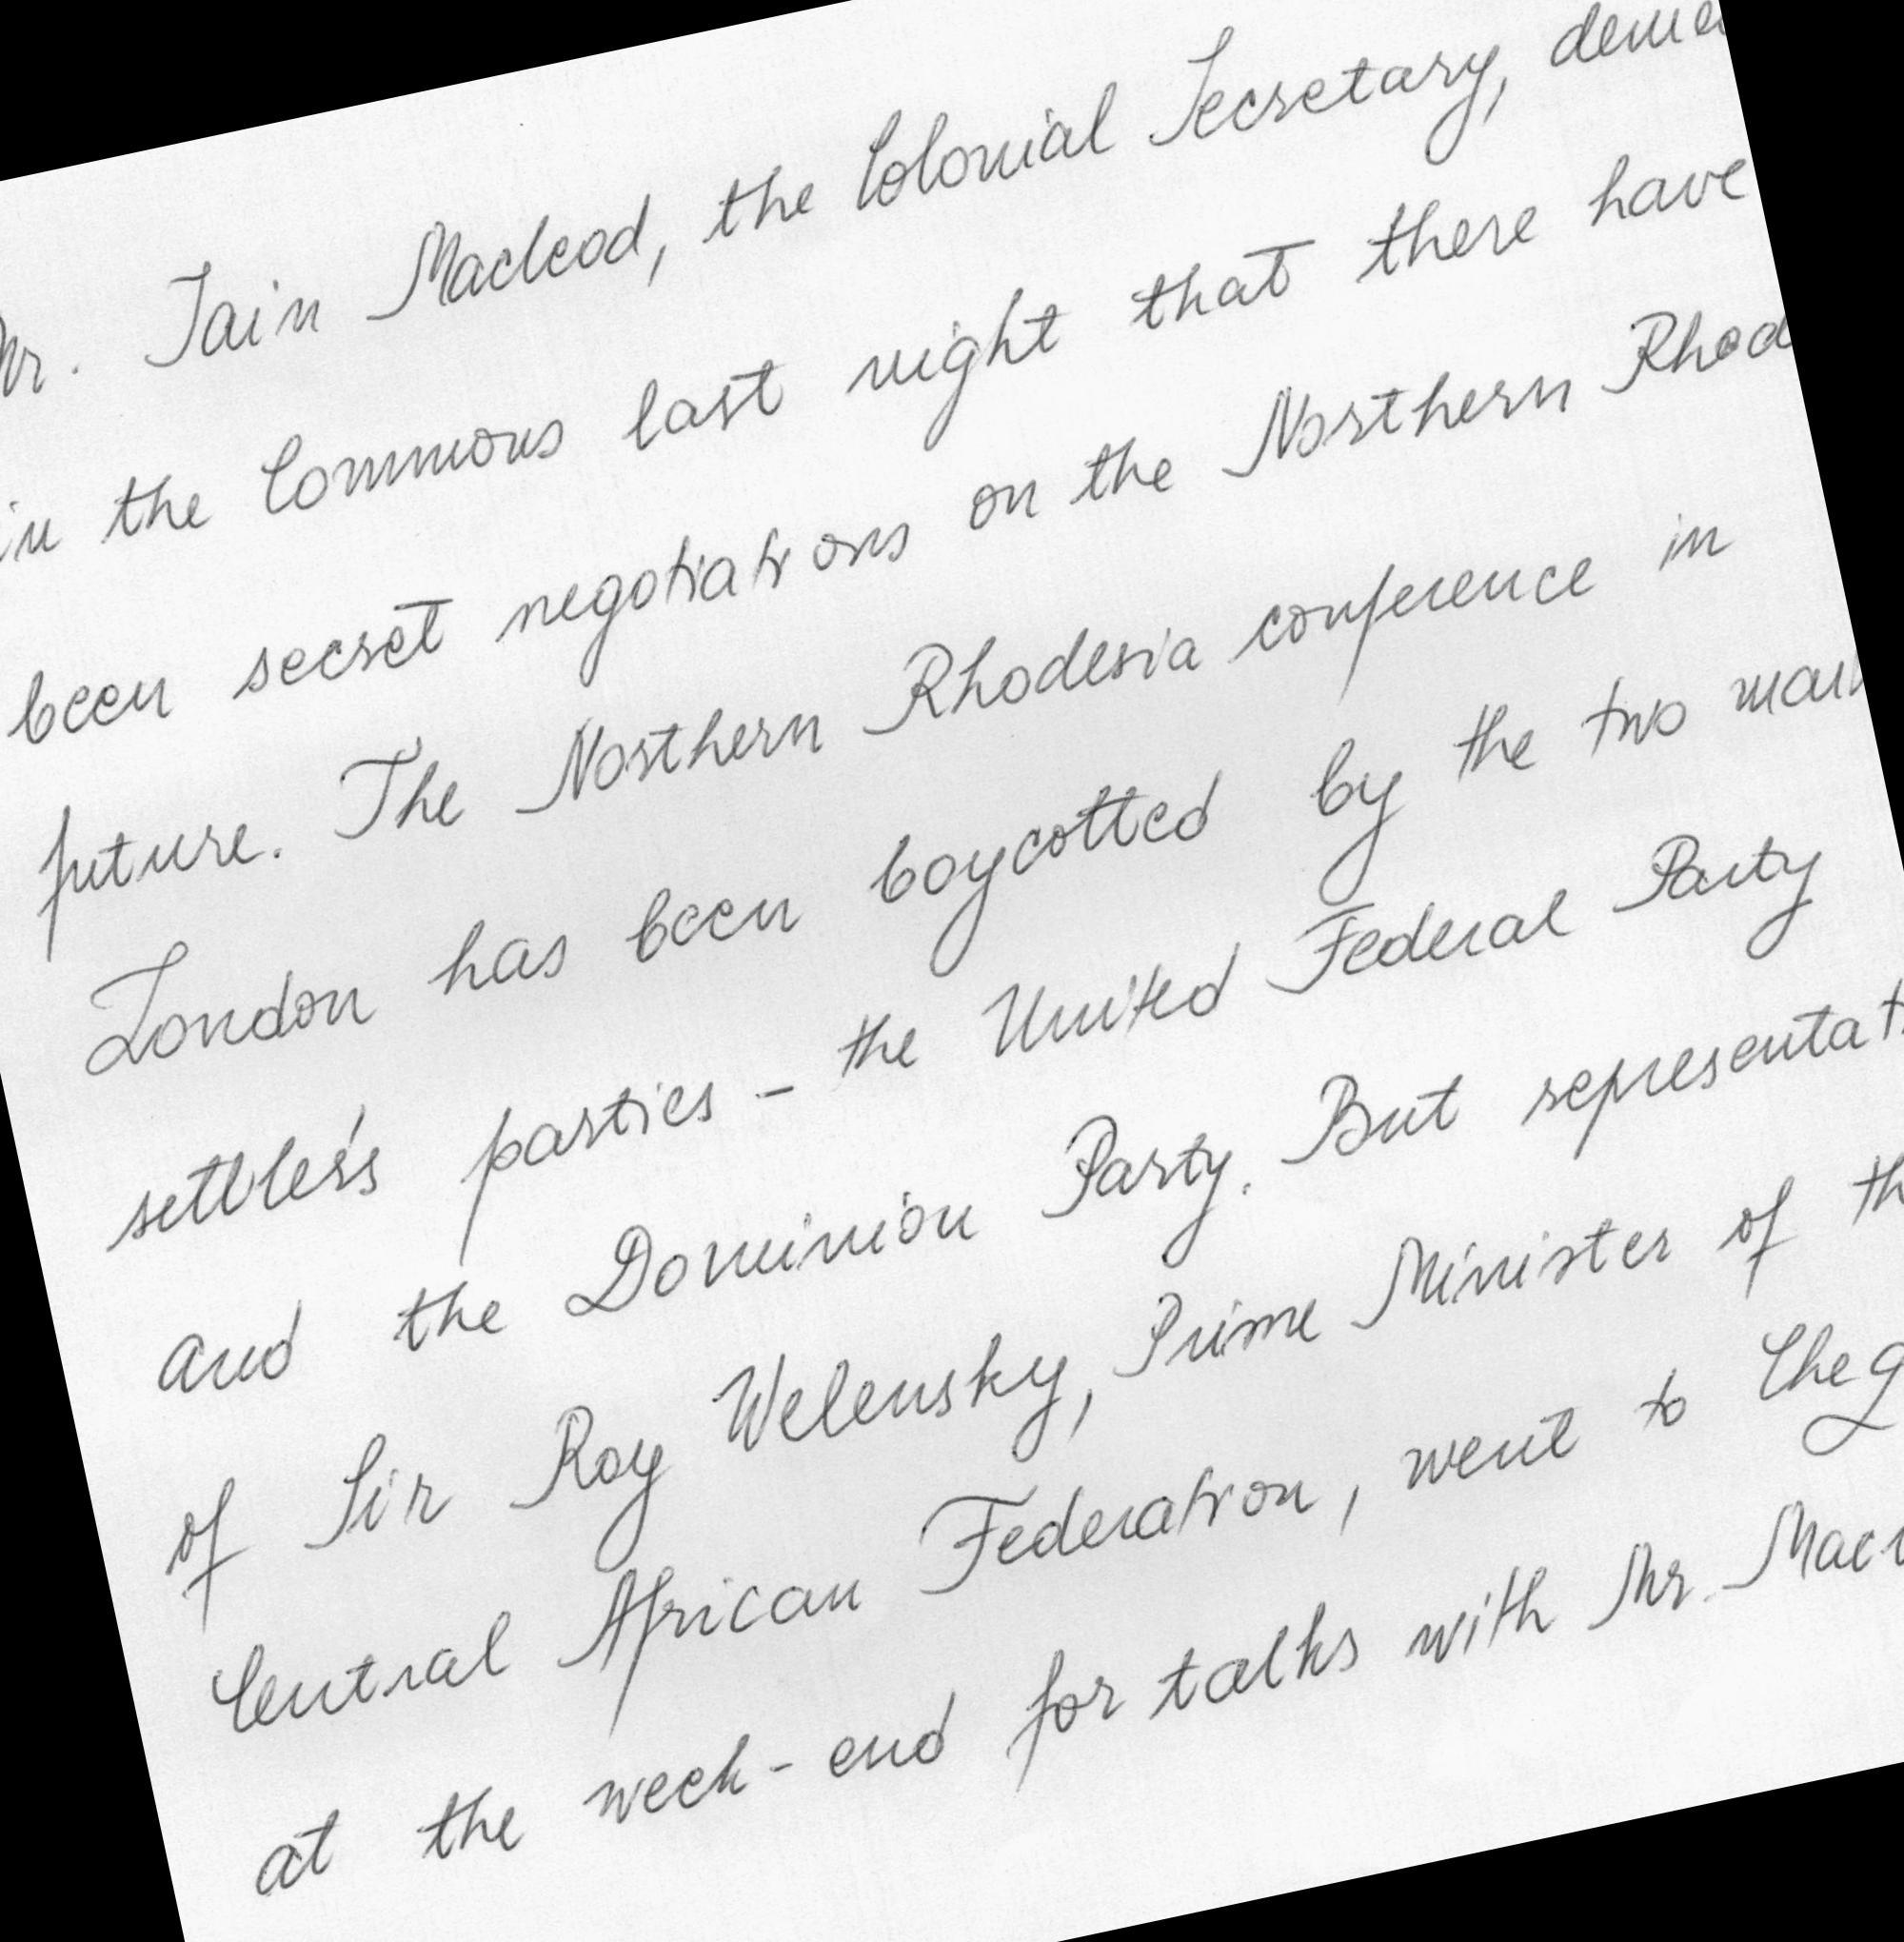 Mr. Iain Macleod, the Colonial Secretary,
in the Commons last night that there have
been secret negotiations on the Northern
future. The Northern Rhodesia conference in
London has been boycotted by the two
settler's parties - the United Federal Party
and the Dominion Party. But
of Sir Roy Welensky, Prime Minister of
Central African Federation, went to
at the week-end for talks with Mr.